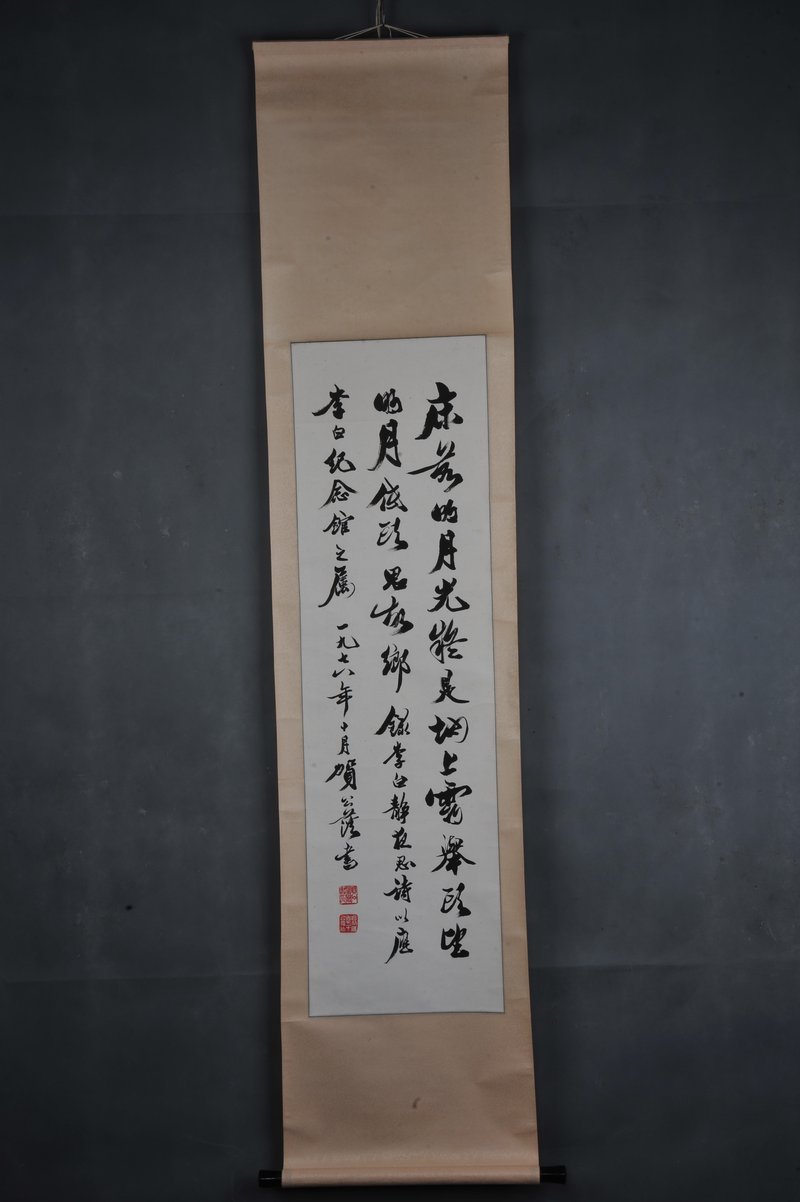 床前明月光疑是地上霜舉頭望
明月低頭思故鄉 錄李白静夜思詩以應
李白纪念館之属 一九七八年十月賀公蔭書